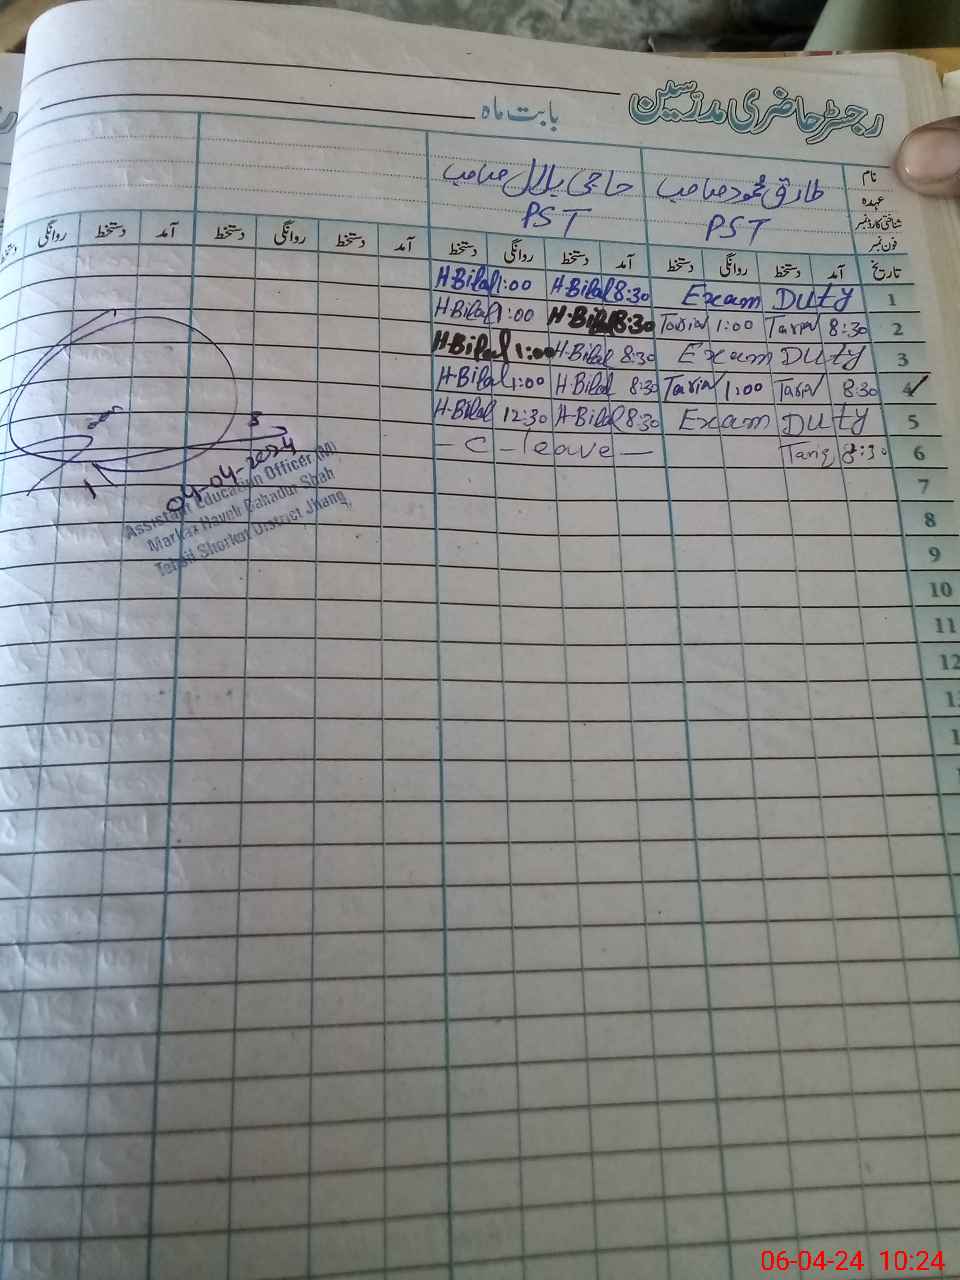 رجسٹر حاضری مدرسین
بابت ماہ
نام طارق محمود صاحب حاجی بلال صاحب
عہدہ PST PST
شناختی کارڈ نمبر
فون نمبر
تاریخ آمد دستخط روانگی دستخط آمد دستخط روانگی دستخط آمد دستخط روانگی دستخط آمد دستخط روانگی دستخط
1 Exam Duty H·Bilal 8:30 H·Bilal 1:00
2 Tariq 8:30 Tariq 1:00 H·Bilal 8:30 H·Bilal 1:00
3 Exam Duty H·Bilal 8:30 H·Bilal 1:00
4 Tariq 8:30 Tariq 1:00 H·Bilal 8:30 H·Bilal 1:00
5 Exam Duty H·Bilal 8:30 H·Bilal 12:30
6 Tariq 8:30 - C - leave -
7
8
9
10
11
12
04-04-2024
Assistant Education Officer (M)
Markaz Haveli Bahadur Shah
Tehsil Shorkot District Jhang
06-04-24 10:24